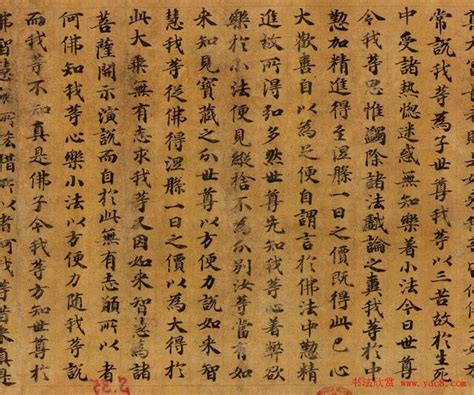 常說我等為子世尊我等以三苦故於生死
中受諸熱惱迷惑無知樂著小法今日世尊
令我等思惟蠲除諸法戲論之糞我等於中
懃加精進得至涅槃一日之價既得此已心
大歡喜自以為足便自謂言於佛法中懃精
進故所得弘多然世尊先知我等心著弊欲
樂於小法便見縱捨不為分別汝等當有如
來知見寶藏之分世尊以方便力說如來智
慧我等從佛得涅槃一日之價以為大得於
此大乘無有志求我等又因如來智慧為諸
菩薩開示演說而自於此無有志願所以者
何佛知我等心樂小法以方便力隨我等說
而我等不知真是佛子今我等方知世尊於
佛智慧無所悋惜所以者何我等昔來真
书法欣赏
www.yac8.com